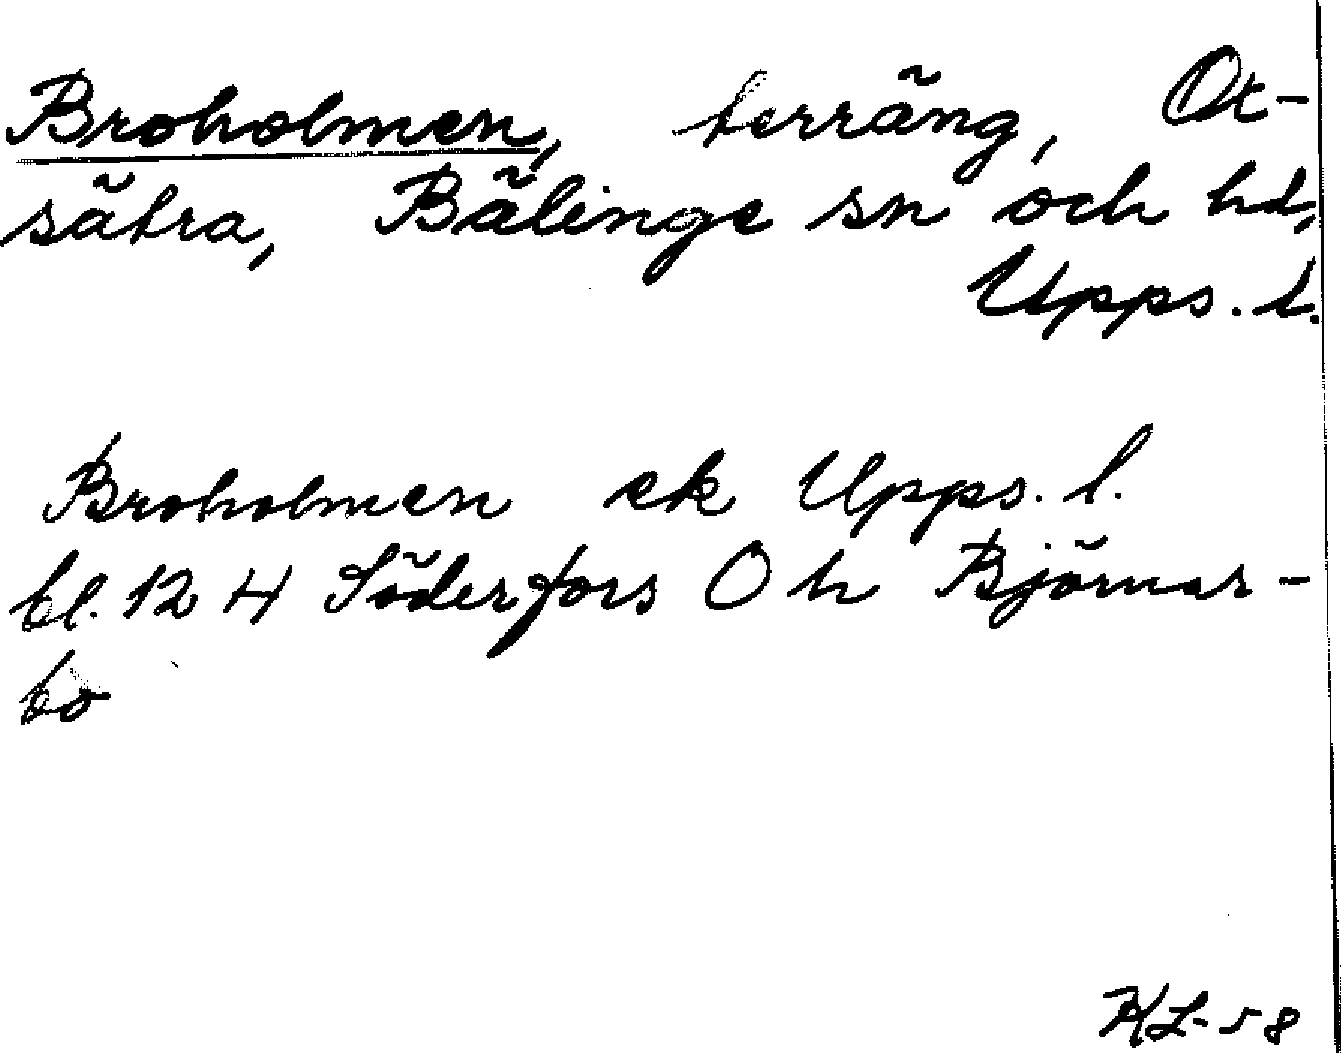 Broholmen, terräng, Ot-
sätra, Bälinge sn och hd,
Upps. l.
Broholmen ek Upps. l.
bl. 124 Söderfors O h Björnar-
bo
KL-58